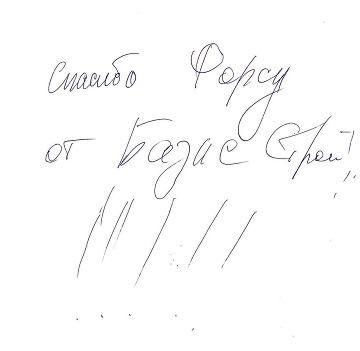 Спасибо Форсу
от Базис Строй!!
!!!!!